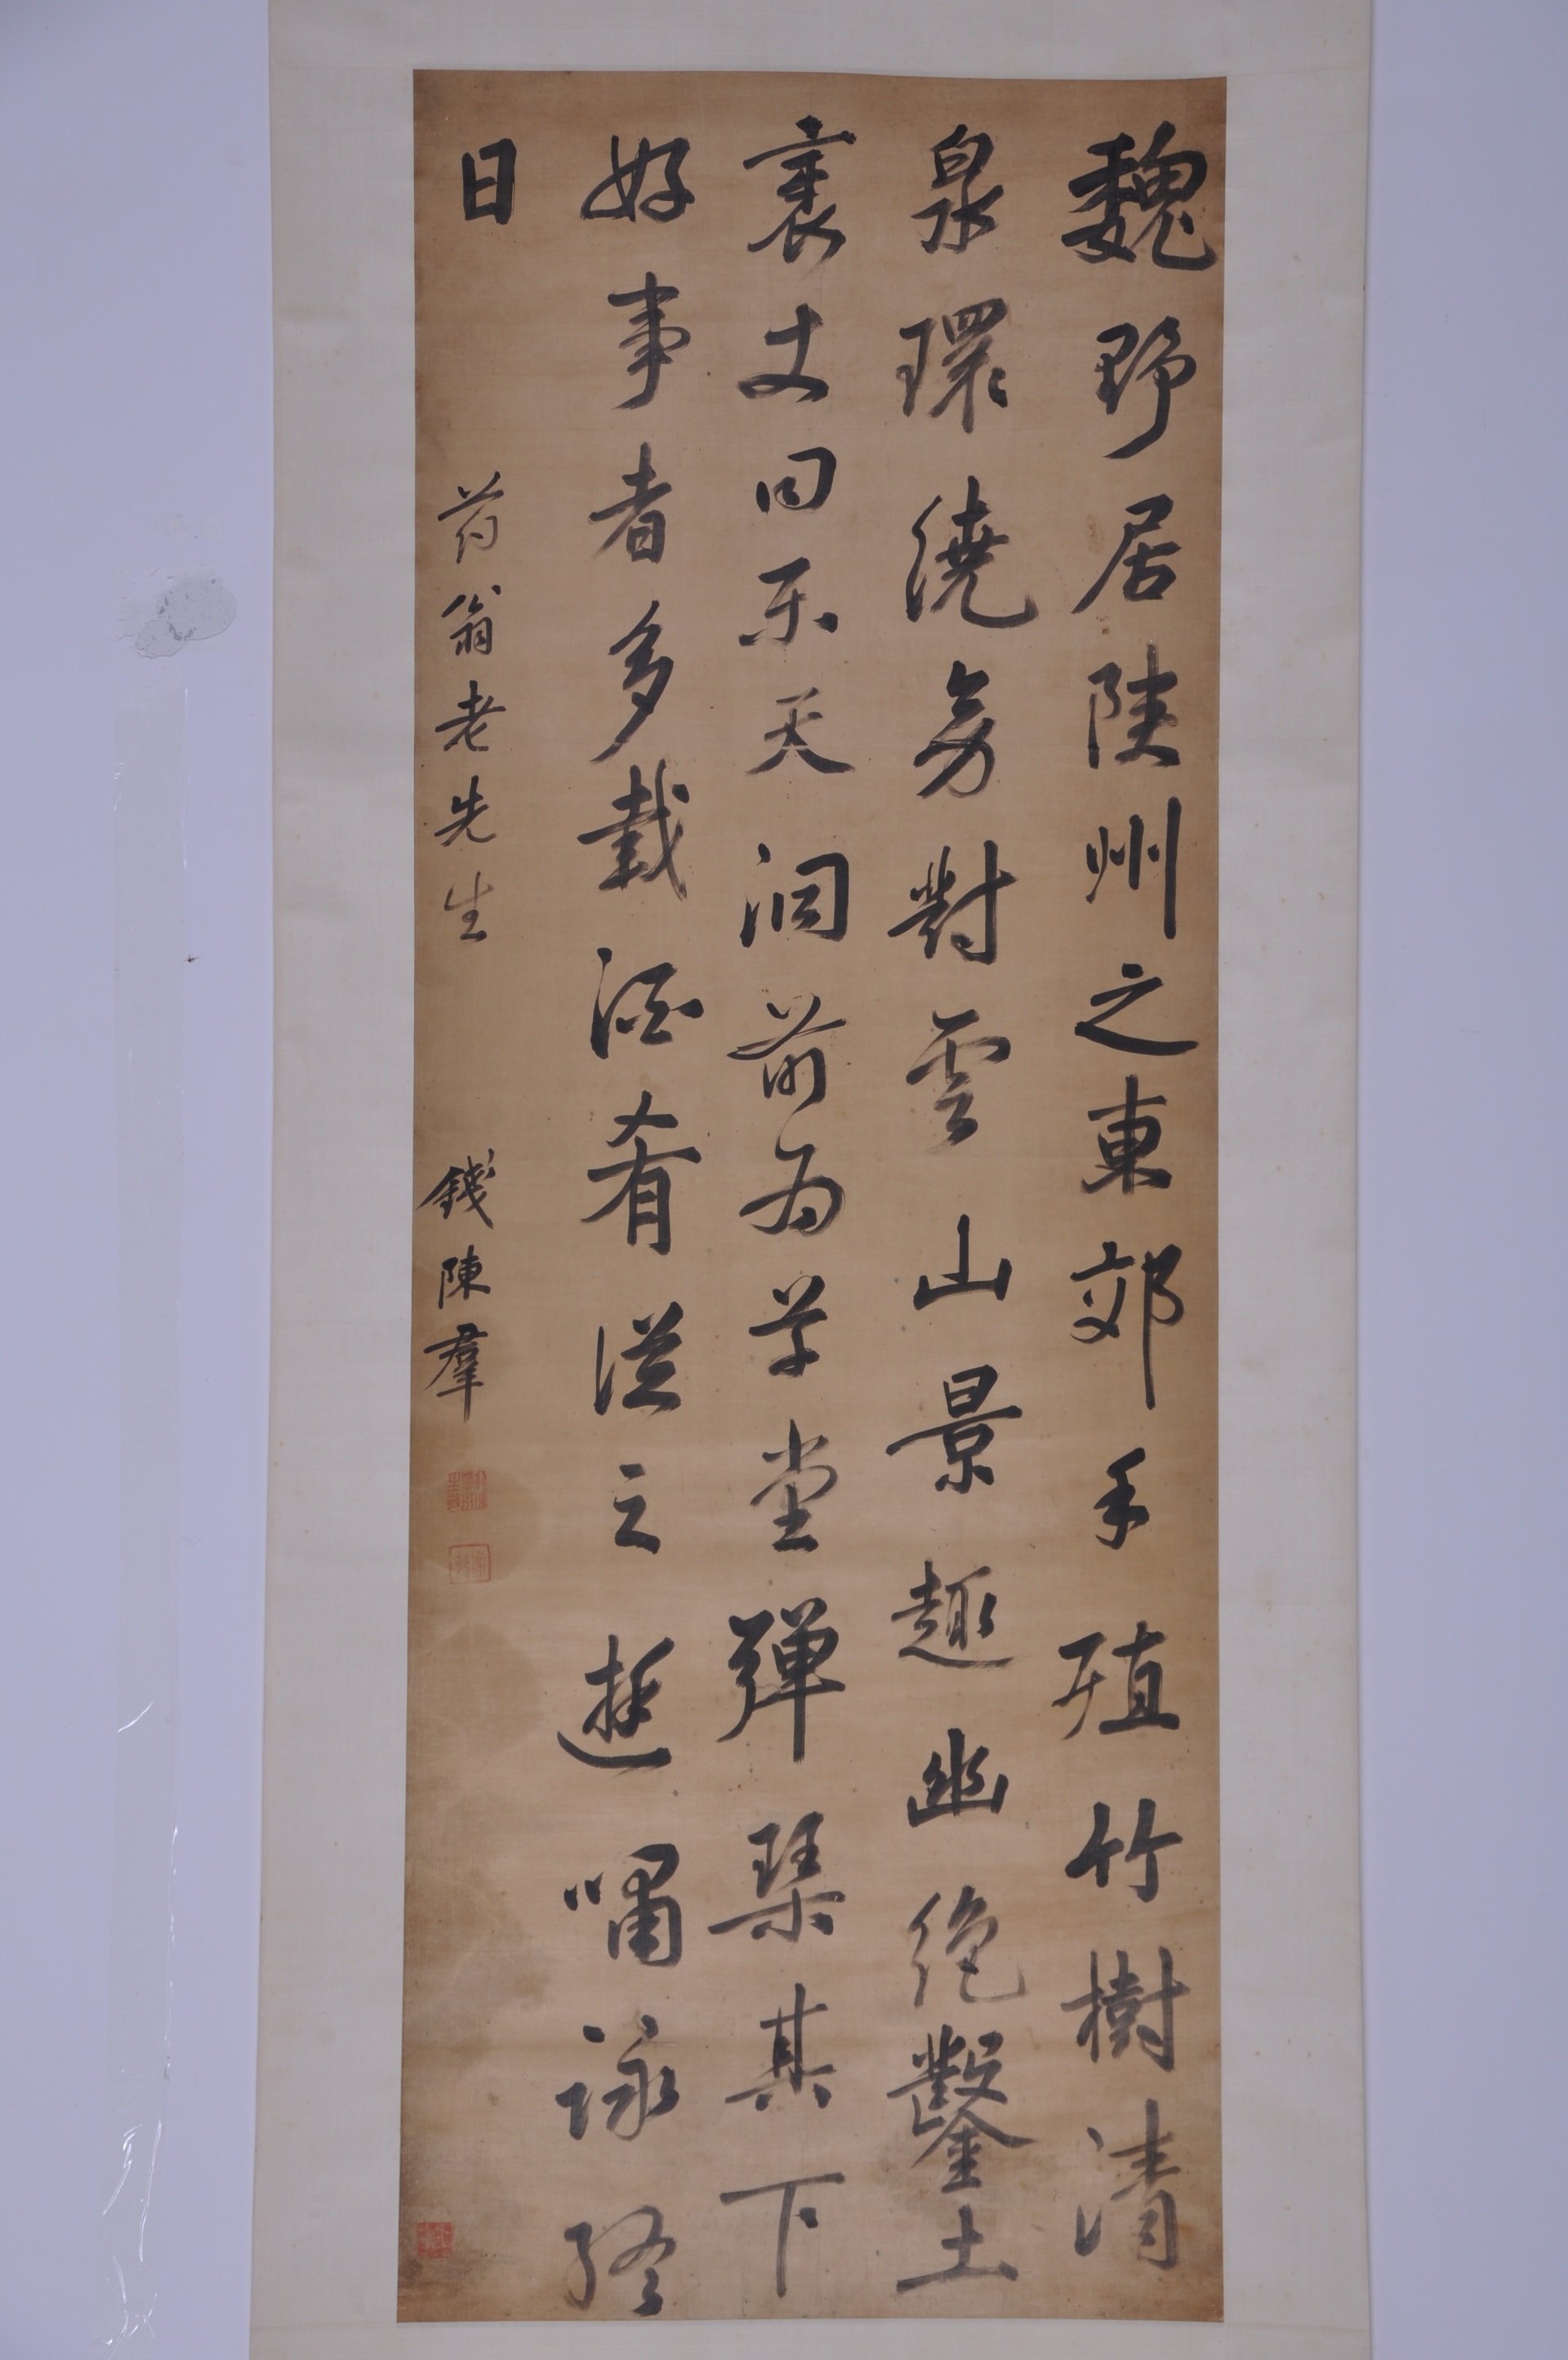 魏野居陕州之東郊手殖竹樹清
泉環繞旁對雲山景趣幽绝鑿土
袤丈曰乐天洞前为草堂彈琹其下
好事者多载酒肴從之遊嘯詠终
日
药翁老先生
錢陳羣